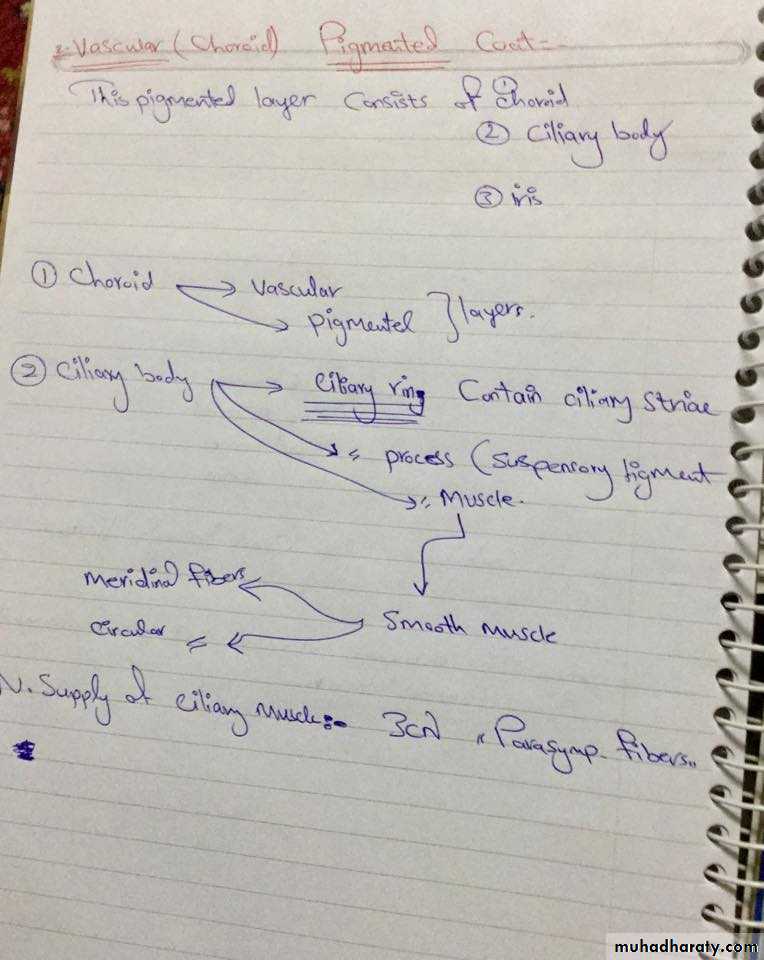 2. Vascular (Choroid) Pigmented Coat:-
This pigmented layer Consists of ① Choroid
② Ciliary body
③ iris
① Choroid → Vascular
→ pigmentel } layers.
② Ciliary body → Ciliary ring Contain ciliary striae
→ = process (suspensory ligment
→ = Muscle.
Smooth muscle
meridinal fibers
circular =
N. Supply of ciliary muscle:- 3CN "Parasymp. fibers..
muhadharaty.com